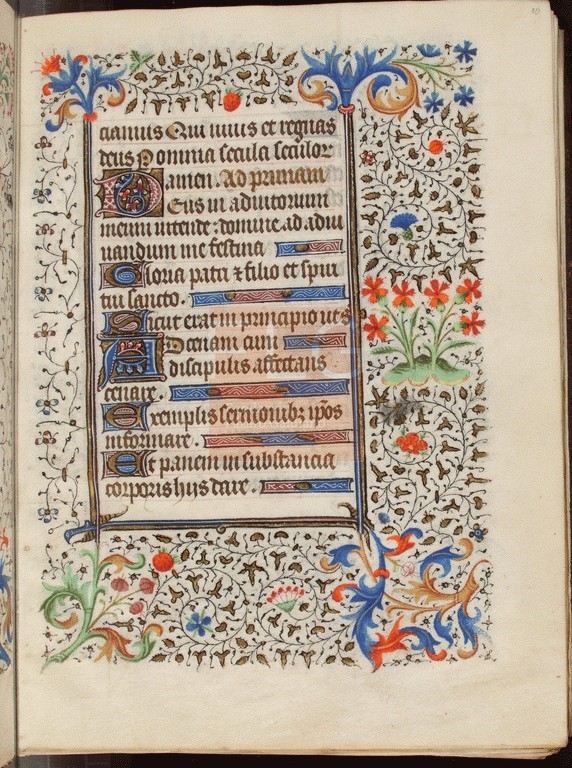 10
ciamus Qui vivis et regnas
deus Per omnia secula seculor
amen. Ad primam
Deus in adiutorium
meum intende: domine ad adiu
uandum me festina
Gloria patri et filio et spiri
tui sancto.
Sicut erat in principio ut s
Ad cenam cum
discipulis affectans
cenare.
Exemplis sermonibz ipos
informare.
Et panem in substancia
corporis huis dare.